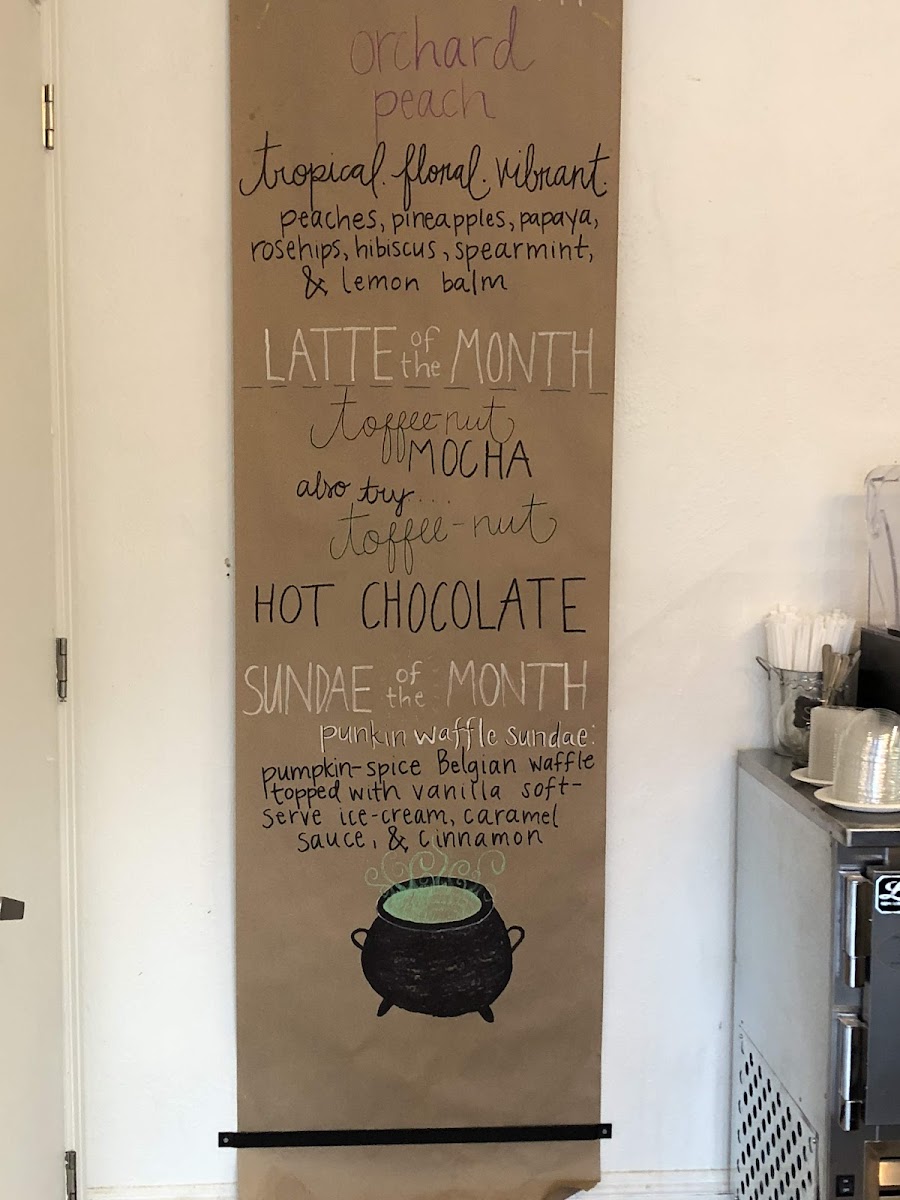 orchard
peach
tropical. floral. vibrant.
peaches, pineapples, papaya,
rosehips, hibiscus, spearmint,
& lemon balm
LATTE of the MONTH
toffee-nut
MOCHA
also try...
toffee-nut
HOT CHOCOLATE
SUNDAE of the MONTH
punkin waffle sundae:
pumpkin-spice Belgian waffle
topped with vanilla soft-
serve ice-cream, caramel
sauce, & cinnamon